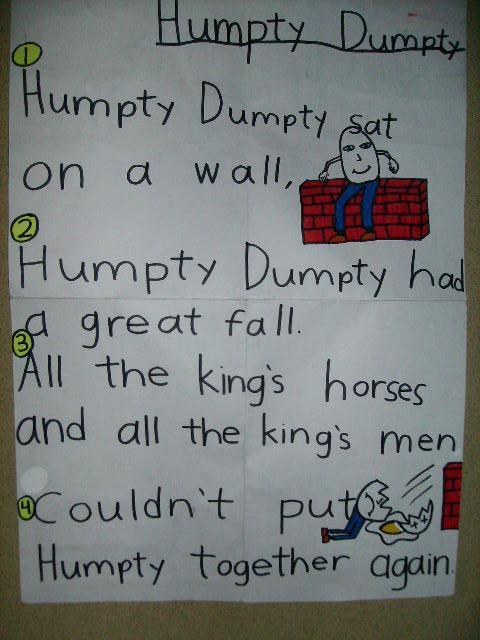 Humpty Dumpty
1
Humpty Dumpty sat
on a wall,
2
Humpty Dumpty had
a great fall.
3
All the king's horses
and all the king's men
4 Couldn't put
Humpty together again.